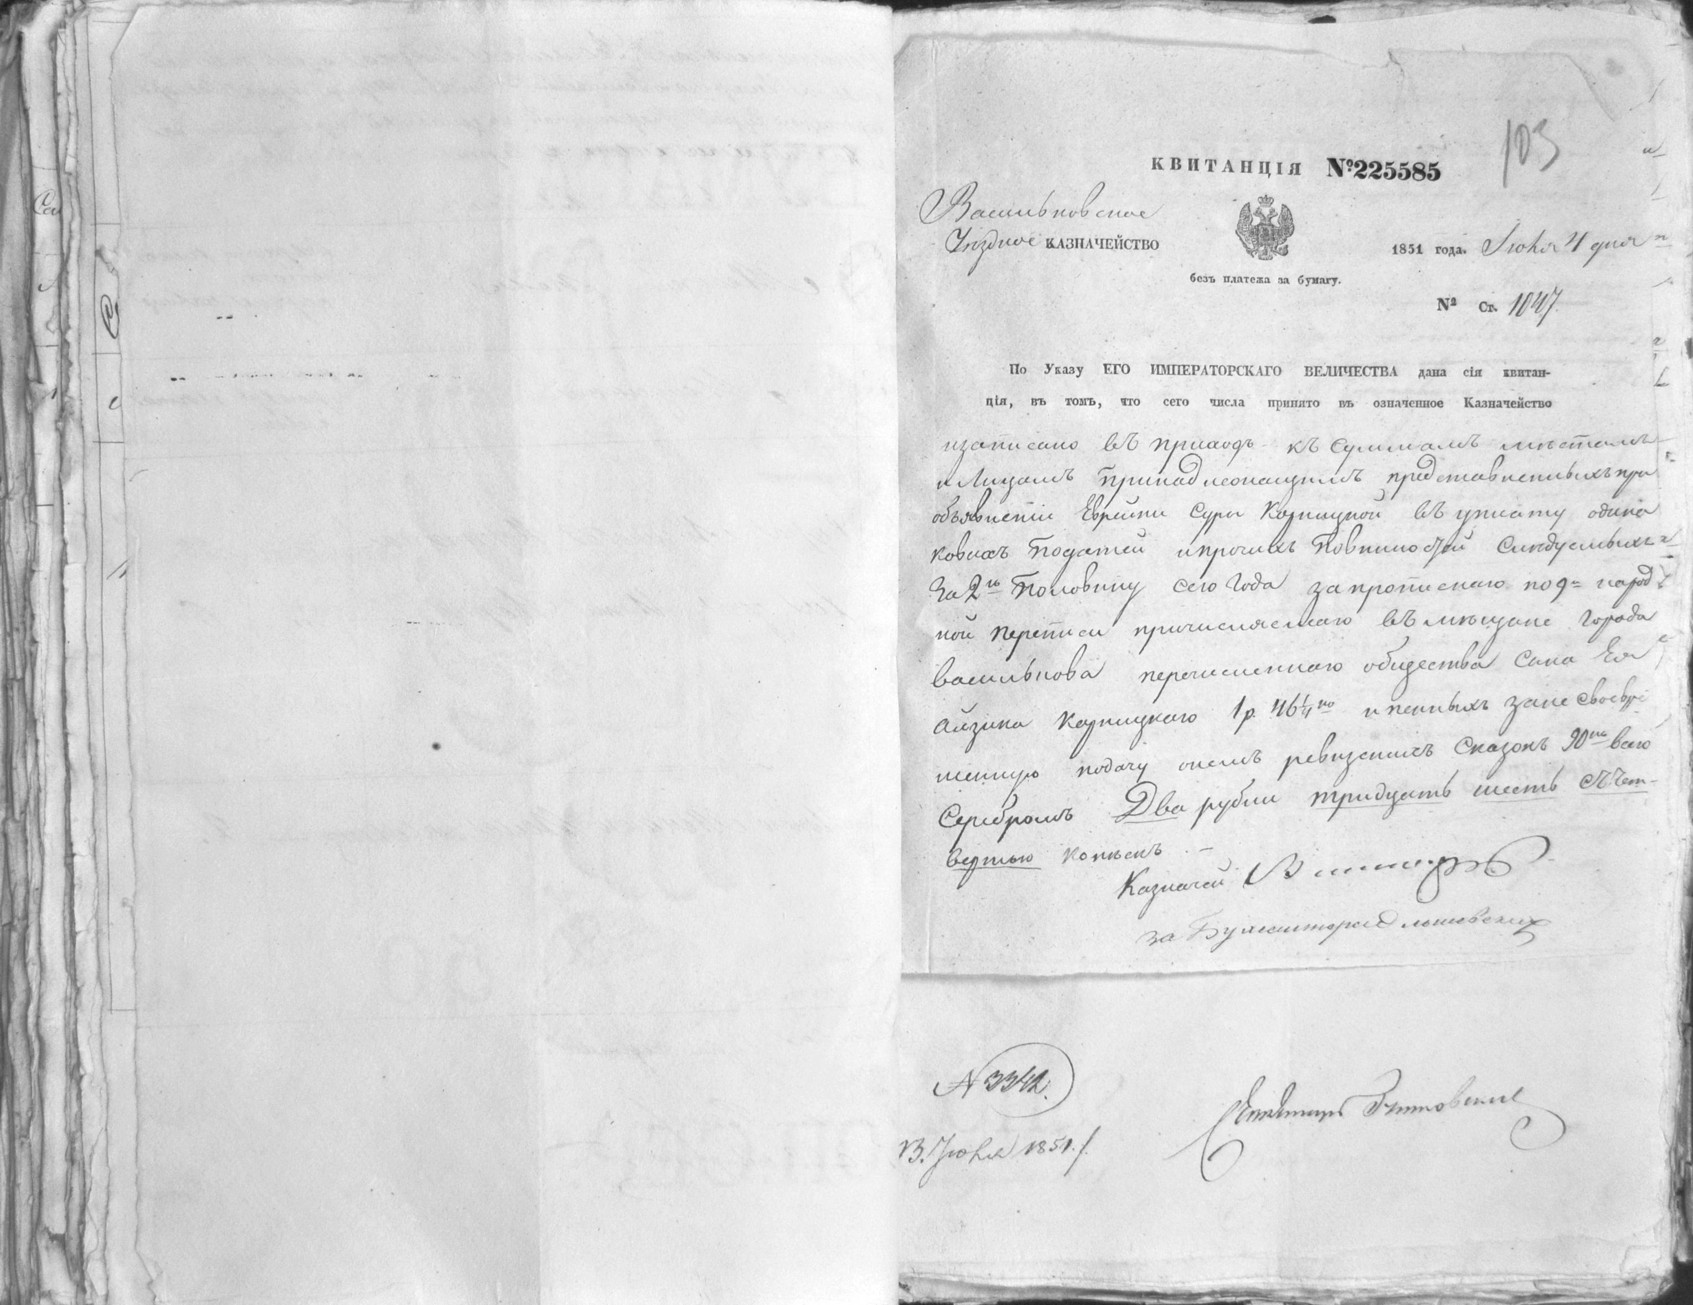 103
КВИТАНЦІЯ №225585
Васильковское
Уѣздное КАЗНАЧЕЙСТВО
1851 года. Іюля 4 дня
безъ платежа за бумагу.
№ Ст. 1047
По Указу ЕГО ИМПЕРАТОРСКАГО ВЕЛИЧЕСТВА дана сія квитан-
ція, въ томъ, что сего числа принято въ означенное Казначейство
изаписано въ приходъ къ суммамъ мѣстамъ
и Лицамъ Принадлежащимъ представленныхъ при
объявленіи Еврейки Суры Корницкой въ уплату одина
ковыхъ Податей ипрочихъ Повинностей Слѣдуемыхъ
За 2ю Половину сего Года запрописнаго по 9й народ
ной переписи причисляемаго въ мѣщане Города
Василькова перечисленнаго общества сына Ея
Айзика Корницкаго 1 р. 46¼ ко и пенныхъ зане своевре
менную подачу онемъ ревизскихъ Сказокъ 90 ко всего
Серебромъ Два рубли тридцать шесть съ Чет-
вертью копѣекъ. –
Казначей
за Бухгалтера
№ 3342.
13. Іюля 1851. г.